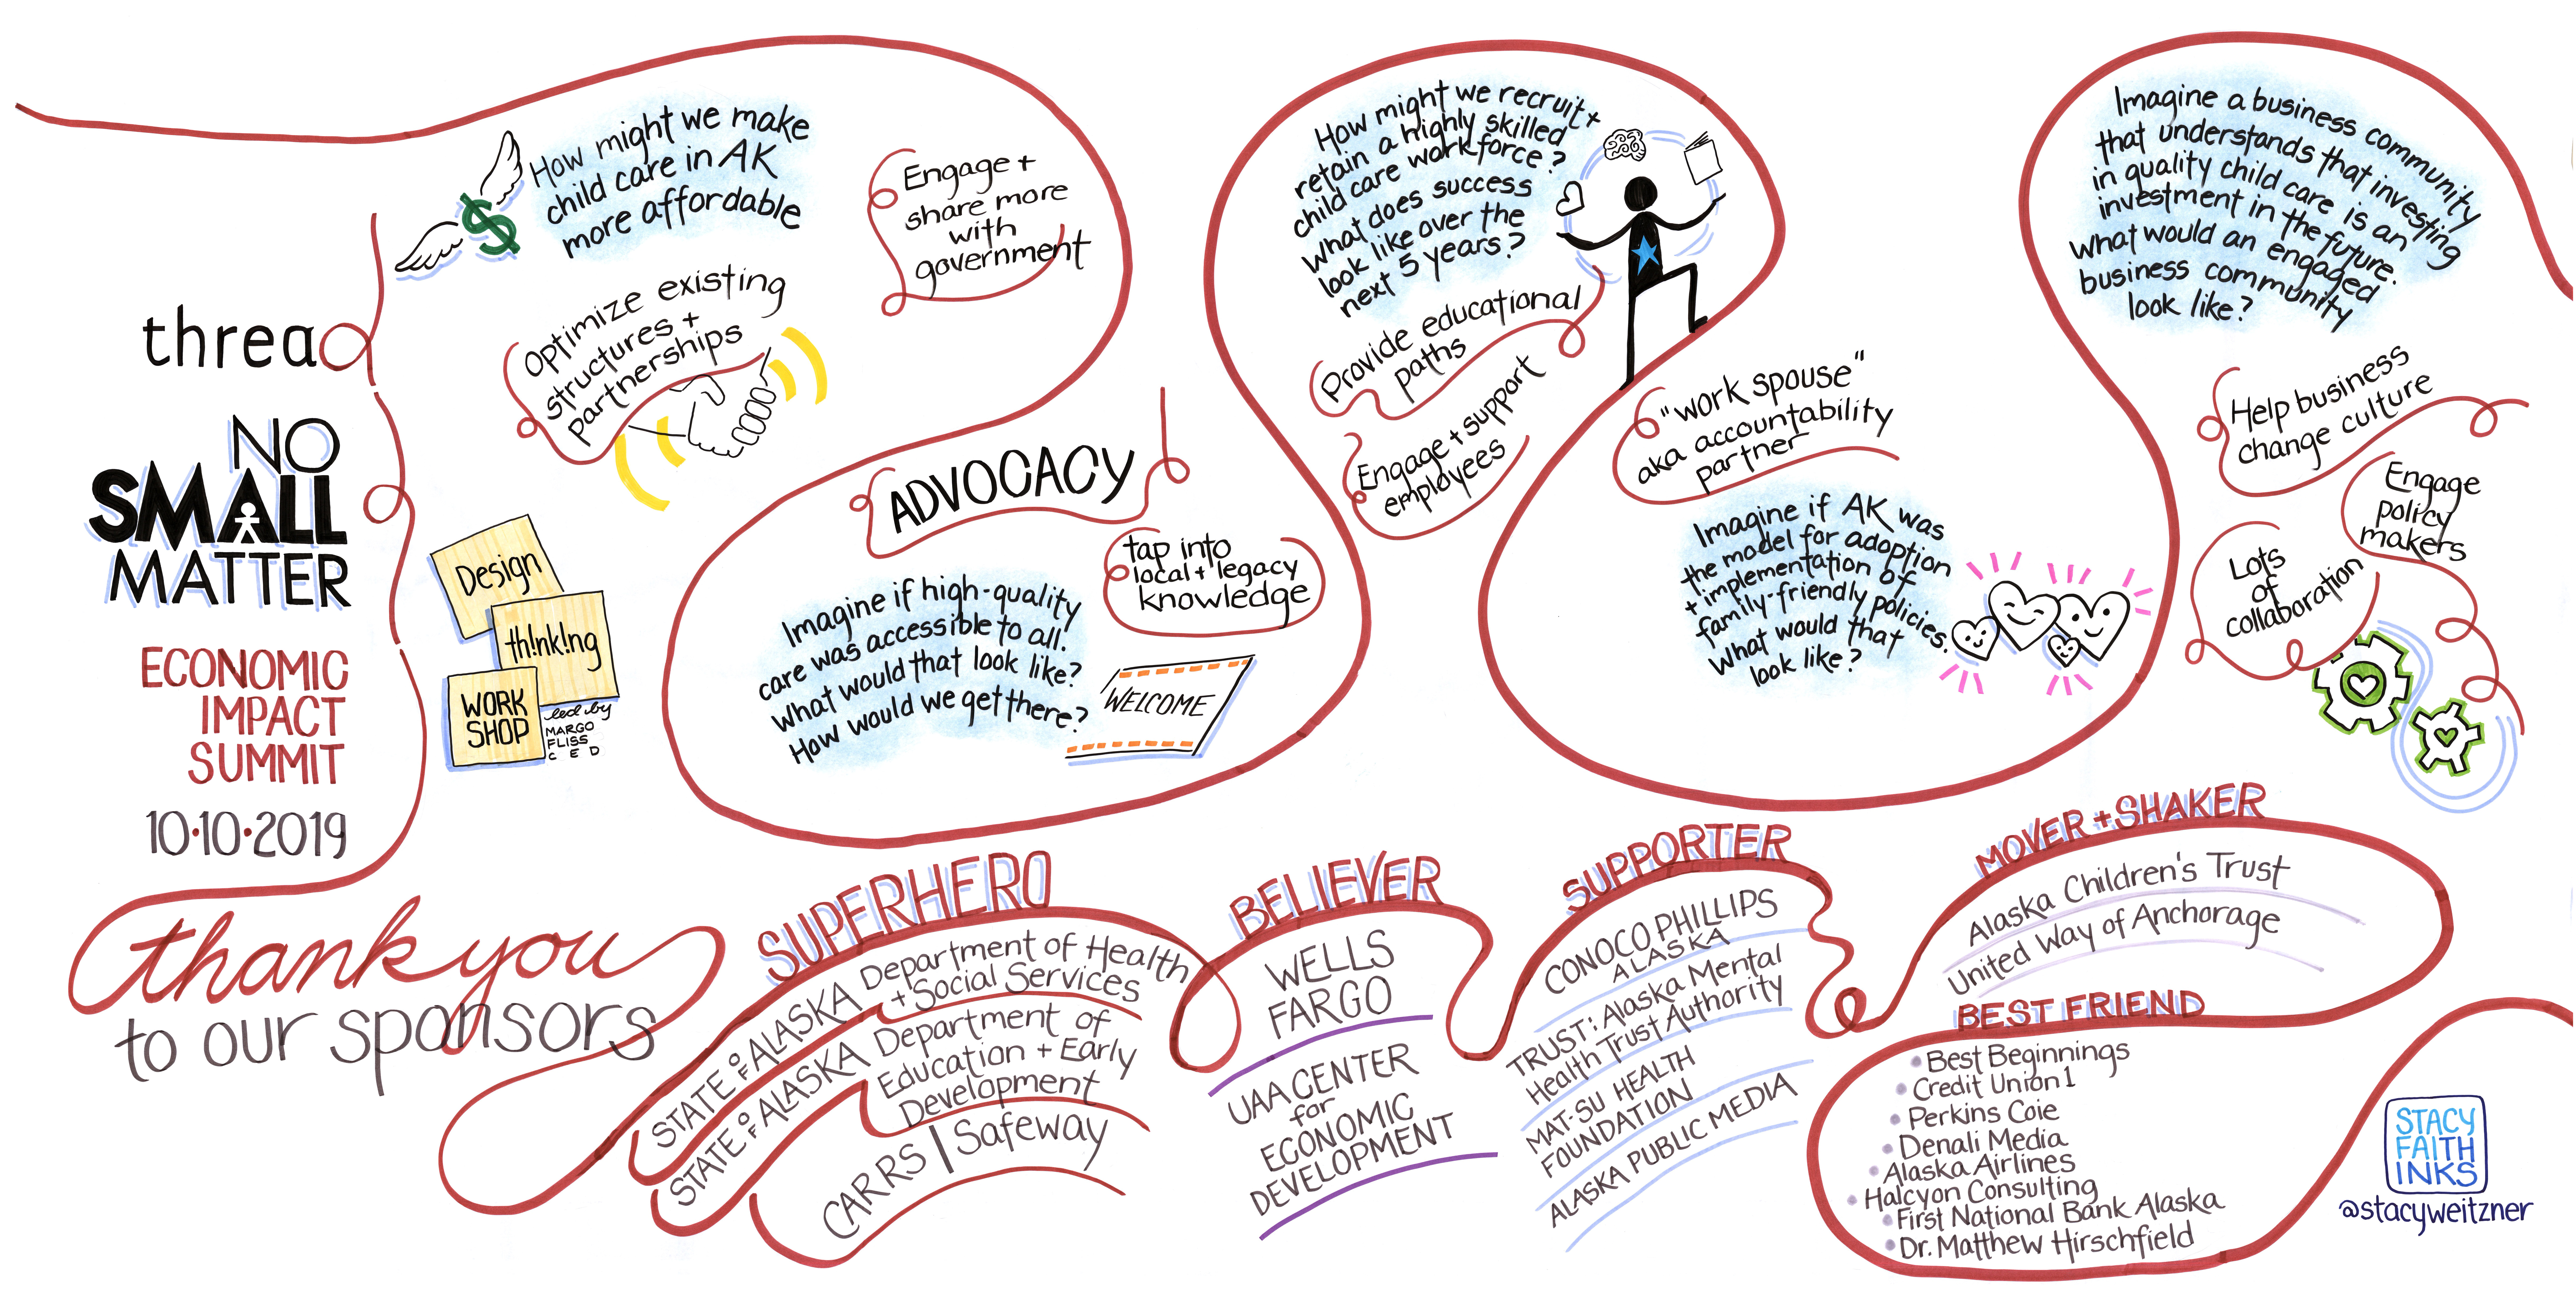 thread
NO
SMALL
MATTER
ECONOMIC
IMPACT
SUMMIT
10·10·2019
Design
th!nk!ng
WORK
SHOP
led by
MARGO
FLISS
CED
$
How might we make
child care in AK
more affordable
Engage +
share more
with
government
Optimize existing
structures +
partnerships
ADVOCACY
tap into
local + legacy
knowledge
Imagine if high-quality
care was accessible to all.
What would that look like?
How would we get there?
WELCOME
How might we recruit +
retain a highly skilled
child care workforce?
What does success
look like over the
next 5 years?
Provide educational
paths
Engage + support
employees
"work spouse"
aka accountability
partner
Imagine if AK was
the model for adoption
+ implementation of
family-friendly policies.
What would that
look like?
Imagine a business community
that understands that investing
in quality child care is an
investment in the future.
What would an engaged
business community
look like?
Help business
change culture
Engage
policy
makers
Lots
of
collaboration
thank you
to our sponsors
SUPERHERO
STATE OF ALASKA Department of Health
+ Social Services
STATE OF ALASKA Department of
Education + Early
Development
CARRS | Safeway
BELIEVER
WELLS
FARGO
UAA CENTER
for
ECONOMIC
DEVELOPMENT
SUPPORTER
CONOCO PHILLIPS
ALASKA
TRUST: Alaska Mental
Health Trust Authority
MAT-SU HEALTH
FOUNDATION
ALASKA PUBLIC MEDIA
MOVER + SHAKER
Alaska Children's Trust
United Way of Anchorage
BEST FRIEND
• Best Beginnings
• Credit Union 1
• Perkins Coie
• Denali Media
• Alaska Airlines
• Halcyon Consulting
• First National Bank Alaska
• Dr. Matthew Hirschfield
STACY
FAITH
INKS
@stacyweitzner